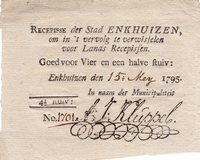 RECEPISSE der Stad ENKHUIZEN,
om in 't vervolg te verwisselen
voor Lands Recepissen.
Goed voor Vier en een halve stuiv:
Enkhuizen den 15 Mey 1795.
In naam der Municipaliteit
4½ stuiv:
No. 1701a
Kluppel